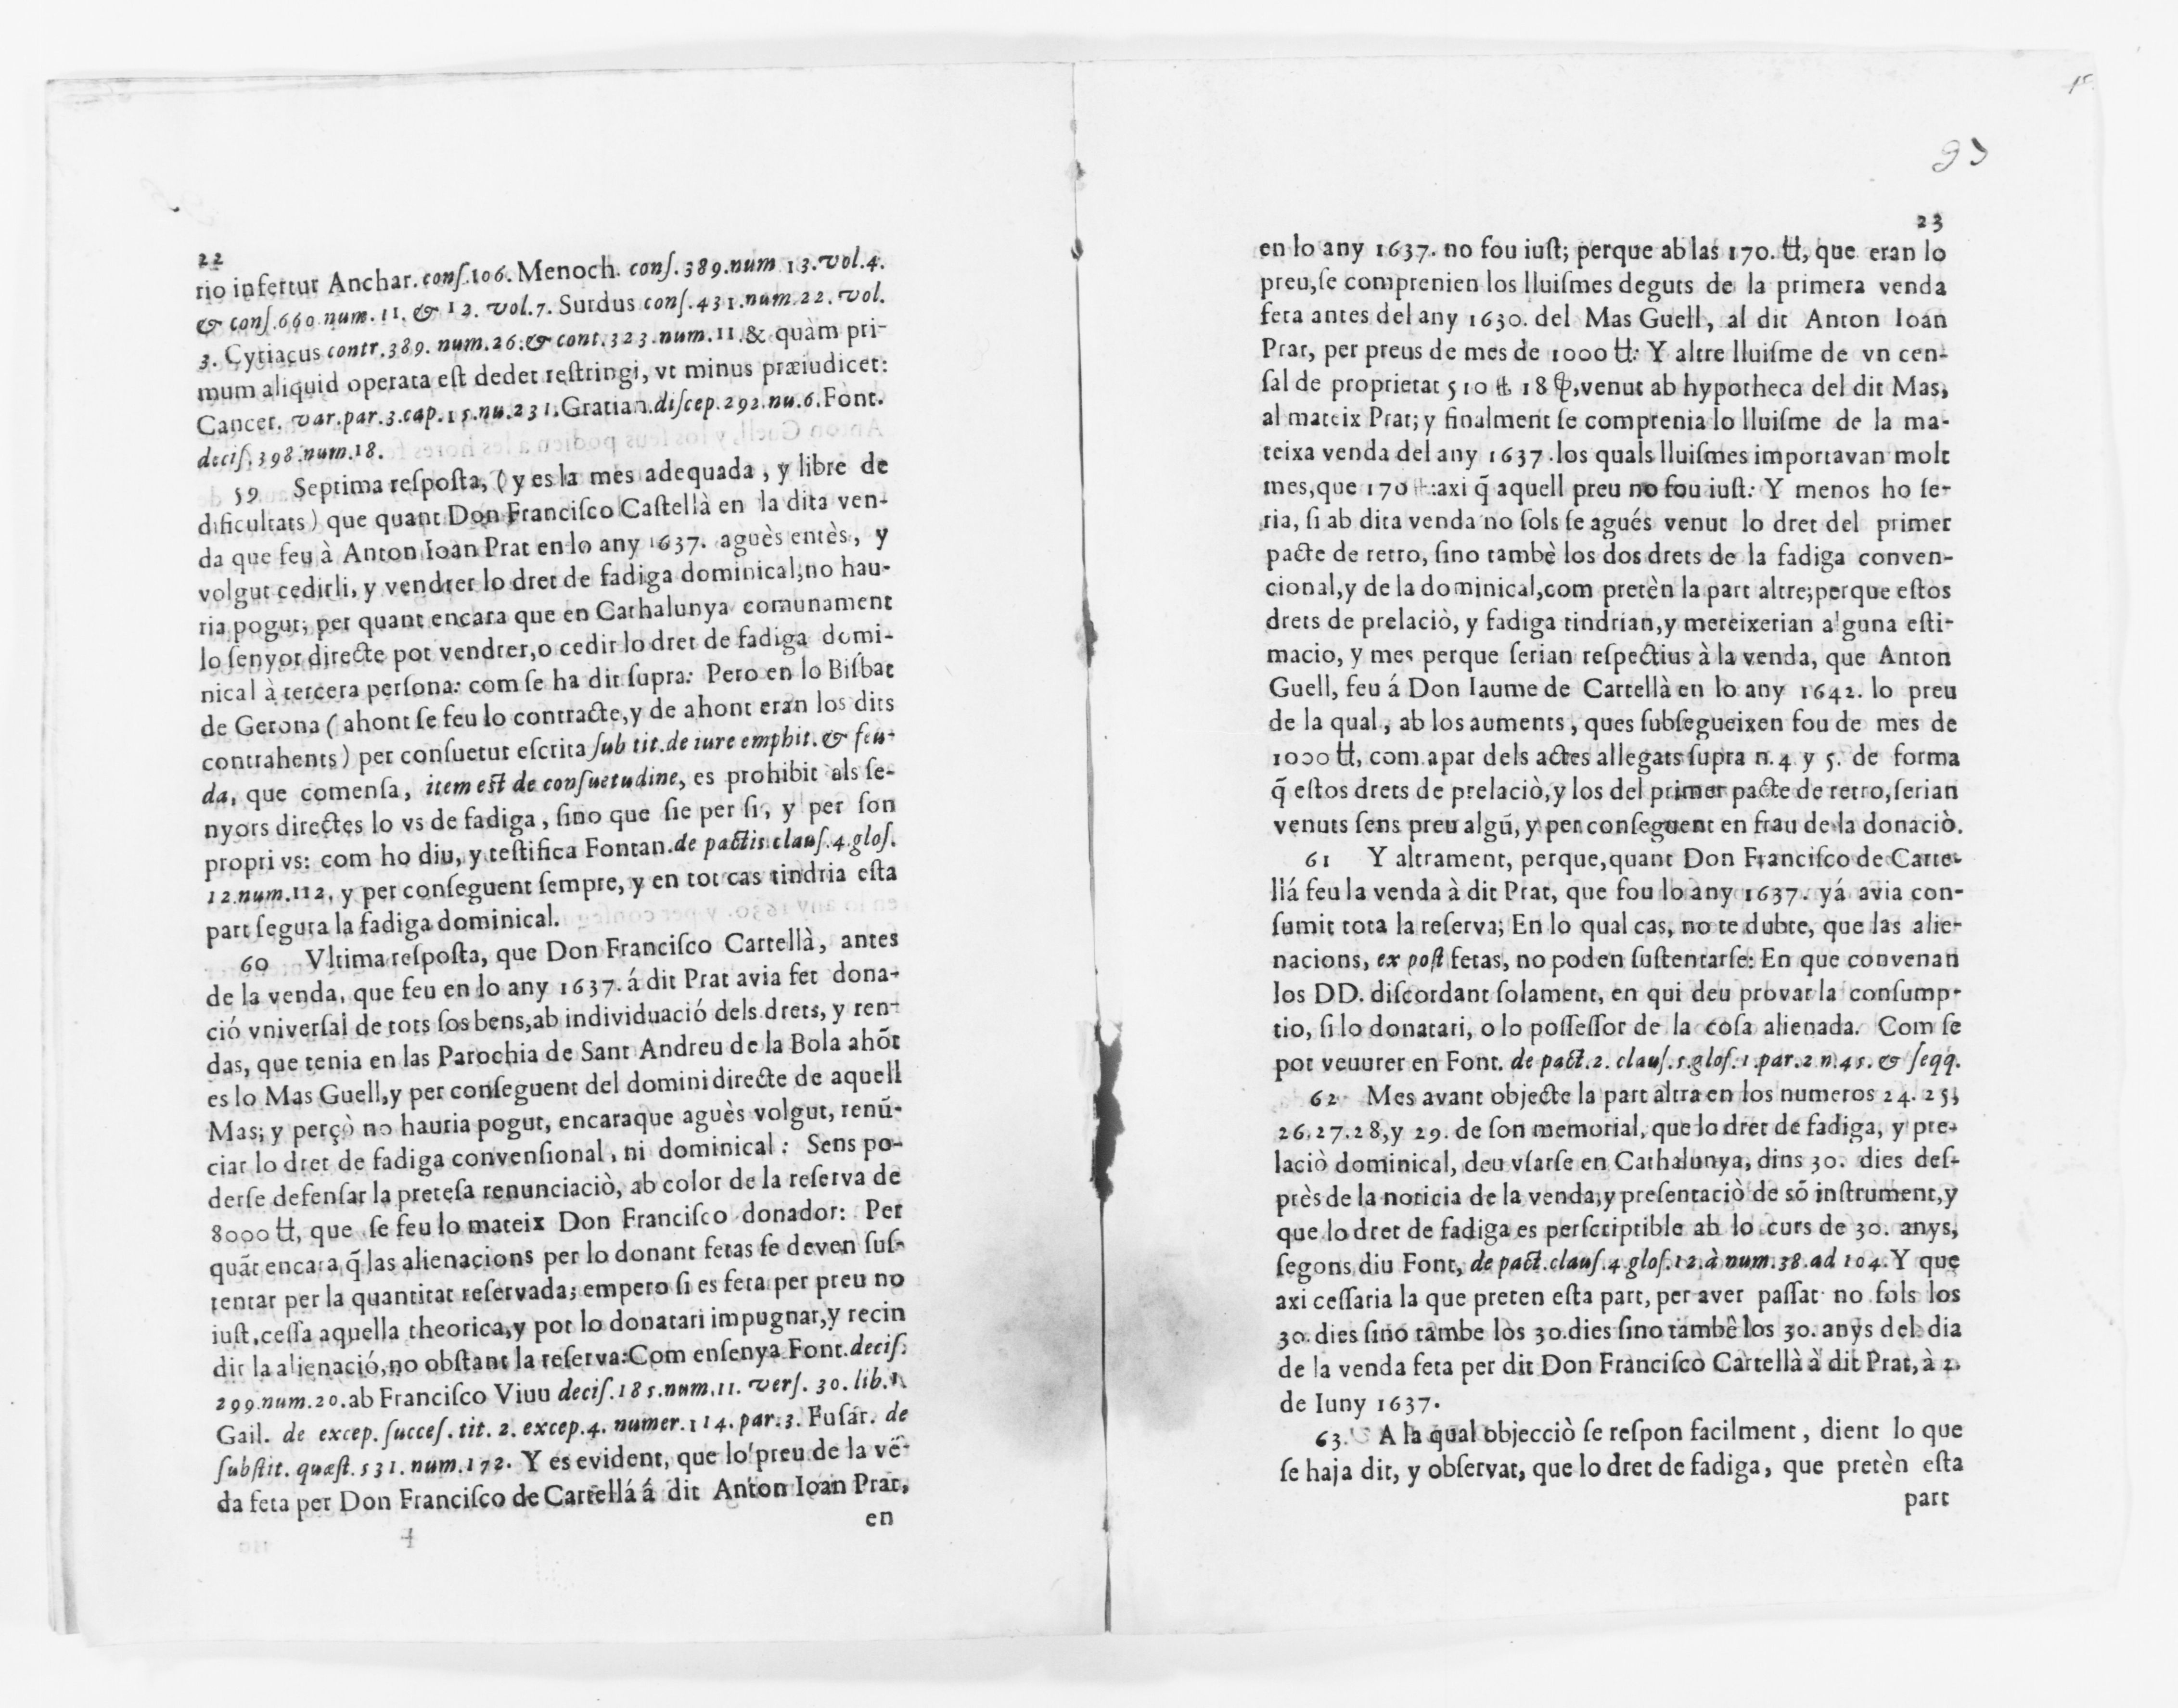 22
rio infertur Anchar. conſ.106. Menoch. conſ.389.num 13.vol.4.
& conſ.660 num.11. & 12. vol.7. Surdus conſ.431.num.22. vol.
3. Cytiacus contr.389. num.26.& cont.323.num.11.& quàm pri-
mum aliquid operata est dedet reſtringi, vt minus præiudicet:
Cancer. var.par.3.cap.15.nu.231.Gratian.diſcep.292.nu.6.Font.
deciſ.398.num.18.
59 Septima reſpoſta, (y es la mes adequada, y libre de
dificultats) que quant Don Franciſco Caſtellà en la dita ven-
da que feu à Anton Ioan Prat en lo any 1637. aguès entès, y
volgut cedirli, y vendrer lo dret de fadiga dominical, no hau-
ria pogut; per quant encara que en Cathalunya comunament
lo ſenyor directe pot vendrer, o cedir lo dret de fadiga domi-
nical à tercera perſona: com ſe ha dit ſupra: Pero en lo Biſbat
de Gerona (ahont ſe feu lo contracte, y de ahont eran los dits
contrahents) per conſuetut eſcrita ſub tit.de iure emphit. & feu-
da, que comenſa, item eſt de conſuetudine, es prohibit als ſe-
nyors directes lo vs de fadiga, ſino que ſie per ſi, y per ſon
propri vs: com ho diu, y teſtifica Fontan.de pactis.clauſ.4.gloſ.
12.num.112. y per conſeguent ſempre, y en tot cas tindria eſta
part ſegura la fadiga dominical.
60 Vltima reſpoſta, que Don Franciſco Cartellà, antes
de la venda, que feu en lo any 1637. á dit Prat avia fet dona-
ció vniverſal de tots ſos bens, ab individuació dels drets, y ren-
das, que tenia en las Parochia de Sant Andreu de la Bola ahõt
es lo Mas Guell, y per conſeguent del domini directe de aquell
Mas; y perçò no hauria pogut, encaraque aguès volgut, renũ-
ciar lo dret de fadiga convenſional, ni dominical: Sens po-
derſe defenſar la preteſa renunciaciò, ab color de la reſerva de
8000 ℔, que ſe feu lo mateix Don Franciſco donador: Per
quãt encara q̃ las alienacions per lo donant fetas ſe deven ſuſ-
tentar per la quantitat reſervada; empero ſi es feta per preu no
iuſt, ceſſa aquella theorica, y pot lo donatari impugnar, y recin
dir la alienació, no obſtant la reſerva: Com enſenya Font.deciſ.
299.num.20.ab Franciſco Viuu deciſ.185.num.11. verſ. 30. lib.1.
Gail. de excep. ſucceſ. tit. 2. excep.4. numer.114. par.3. Fuſár. de
ſubſtit. quæſt. 531. num.172. Y es evident, que lo preu de la vẽ-
da feta per Don Franciſco de Cartellá á dit Anton Ioan Prat,
en
93
23
en lo any 1637. no fou iuſt; perque ab las 170. ℔, que eran lo
preu, ſe comprenien los lluiſmes deguts de la primera venda
feta antes del any 1630. del Mas Guell, al dit Anton Ioan
Prat, per preus de mes de 1000 ℔: Y altre lluiſme de vn cen-
ſal de proprietat 510 ℔ 18 ẞ, venut ab hypotheca del dit Mas,
al mateix Prat; y finalment ſe comprenia lo lluiſme de la ma-
teixa venda del any 1637. los quals lluiſmes importavan molt
mes, que 170 ℔: axi q̃ aquell preu no fou iuſt: Y menos ho ſe-
ria, ſi ab dita venda no ſols ſe agués venut lo dret del primer
pacte de retro, ſino tambè los dos drets de la fadiga conven-
cional, y de la dominical, com pretèn la part altre; perque eſtos
drets de prelaciò, y fadiga tindrian, y mereixerian alguna eſti-
macio, y mes perque ſerian reſpectius à la venda, que Anton
Guell, feu á Don Iaume de Cartellà en lo any 1642. lo preu
de la qual, ab los auments, ques ſubſegueixen fou de mes de
1000 ℔, com apar dels actes allegats ſupra n.4. y 5. de forma
q̃ eſtos drets de prelaciò, y los del primer pacte de retro, ſerian
venuts ſens preu algũ, y per conſeguent en frau de la donaciò.
61 Y altrament, perque, quant Don Franciſco de Carte-
llá feu la venda à dit Prat, que fou lo any 1637. yá avia con-
ſumit tota la reſerva; En lo qual cas, no te dubte, que las alie-
nacions, ex poſt fetas, no poden ſuſtentarſe: En que convenan
los DD. diſcordant ſolament, en qui deu provar la conſump-
tio, ſi lo donatari, o lo poſſeſſor de la coſa alienada. Com ſe
pot veuurer en Font. de pact.2. clauſ.5.gloſ.1.par.2 n.45. & ſeqq.
62 Mes avant objecte la part altra en los numeros 24. 25,
26.27.28, y 29. de ſon memorial, que lo dret de fadiga, y pre-
laciò dominical, deu vſarſe en Cathalunya, dins 30. dies deſ-
près de la noticia de la venda, y preſentaciò de sõ inſtrument, y
que lo dret de fadiga es perſcriptible ab lo curs de 30. anys,
ſegons diu Font, de pact.clauſ.4.gloſ.12.à num.38.ad 104. Y que
axi ceſſaria la que preten eſta part, per aver paſſat no ſols los
30. dies ſino tambe los 30.dies ſino tambê los 30. anys del dia
de la venda feta per dit Don Franciſco Cartellà à dit Prat, à 2.
de Iuny 1637.
63. A la qual objecciò ſe reſpon facilment, dient lo que
ſe haja dit, y obſervat, que lo dret de fadiga, que pretèn eſta
part